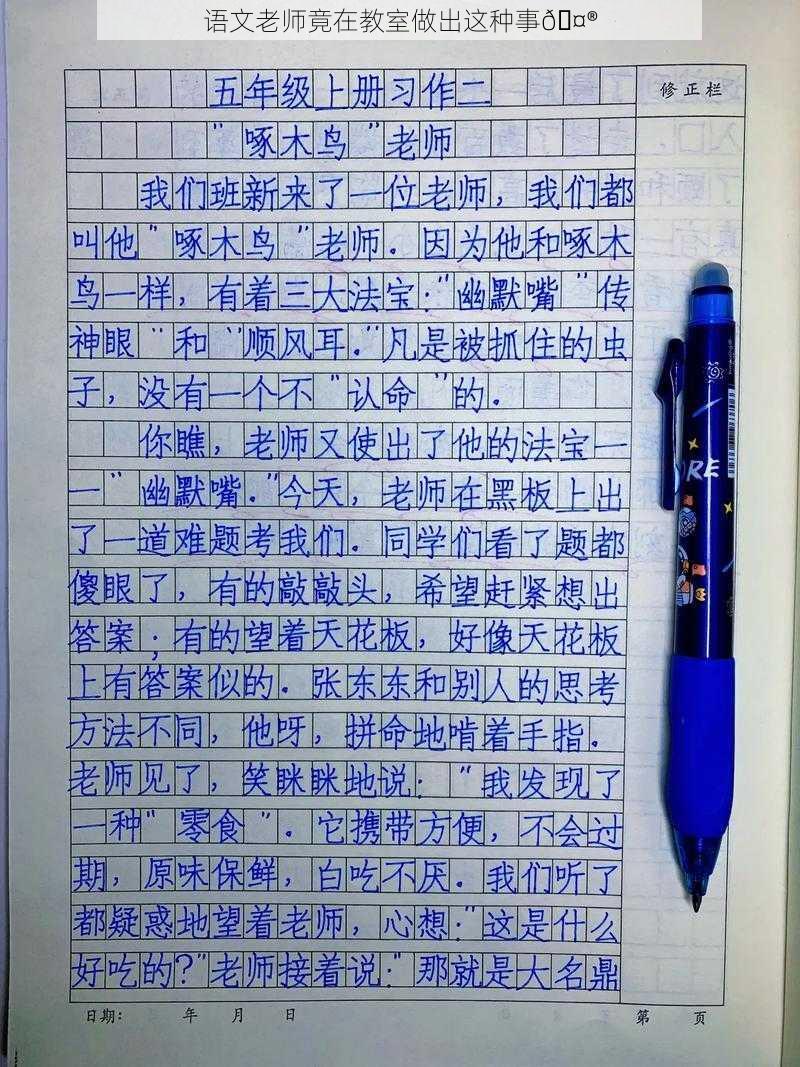 语文老师竟在教室做出这种事ð¤®
五年级上册习作二
修正栏
"啄木鸟"老师
我们班新来了一位老师，我们都
叫他"啄木鸟"老师．因为他和啄木
鸟一样，有着三大法宝："幽默嘴"传
神眼"和"顺风耳．"凡是被抓住的虫
子，没有一个不"认命"的．
你瞧，老师又使出了他的法宝一
一"幽默嘴．"今天，老师在黑板上出
了一道难题考我们．同学们看了题都
傻眼了，有的敲敲头，希望赶紧想出
答案；有的望着天花板，好像天花板
上有答案似的．张东东和别人的思考
方法不同，他呀，拼命地啃着手指．
老师见了，笑眯眯地说："我发现了
一种"零食"．它携带方便，不会过
期，原味保鲜，白吃不厌．我们听了
都疑惑地望着老师，心想："这是什么
好吃的？"老师接着说："那就是大名鼎
日期： 年 月 日 第 页